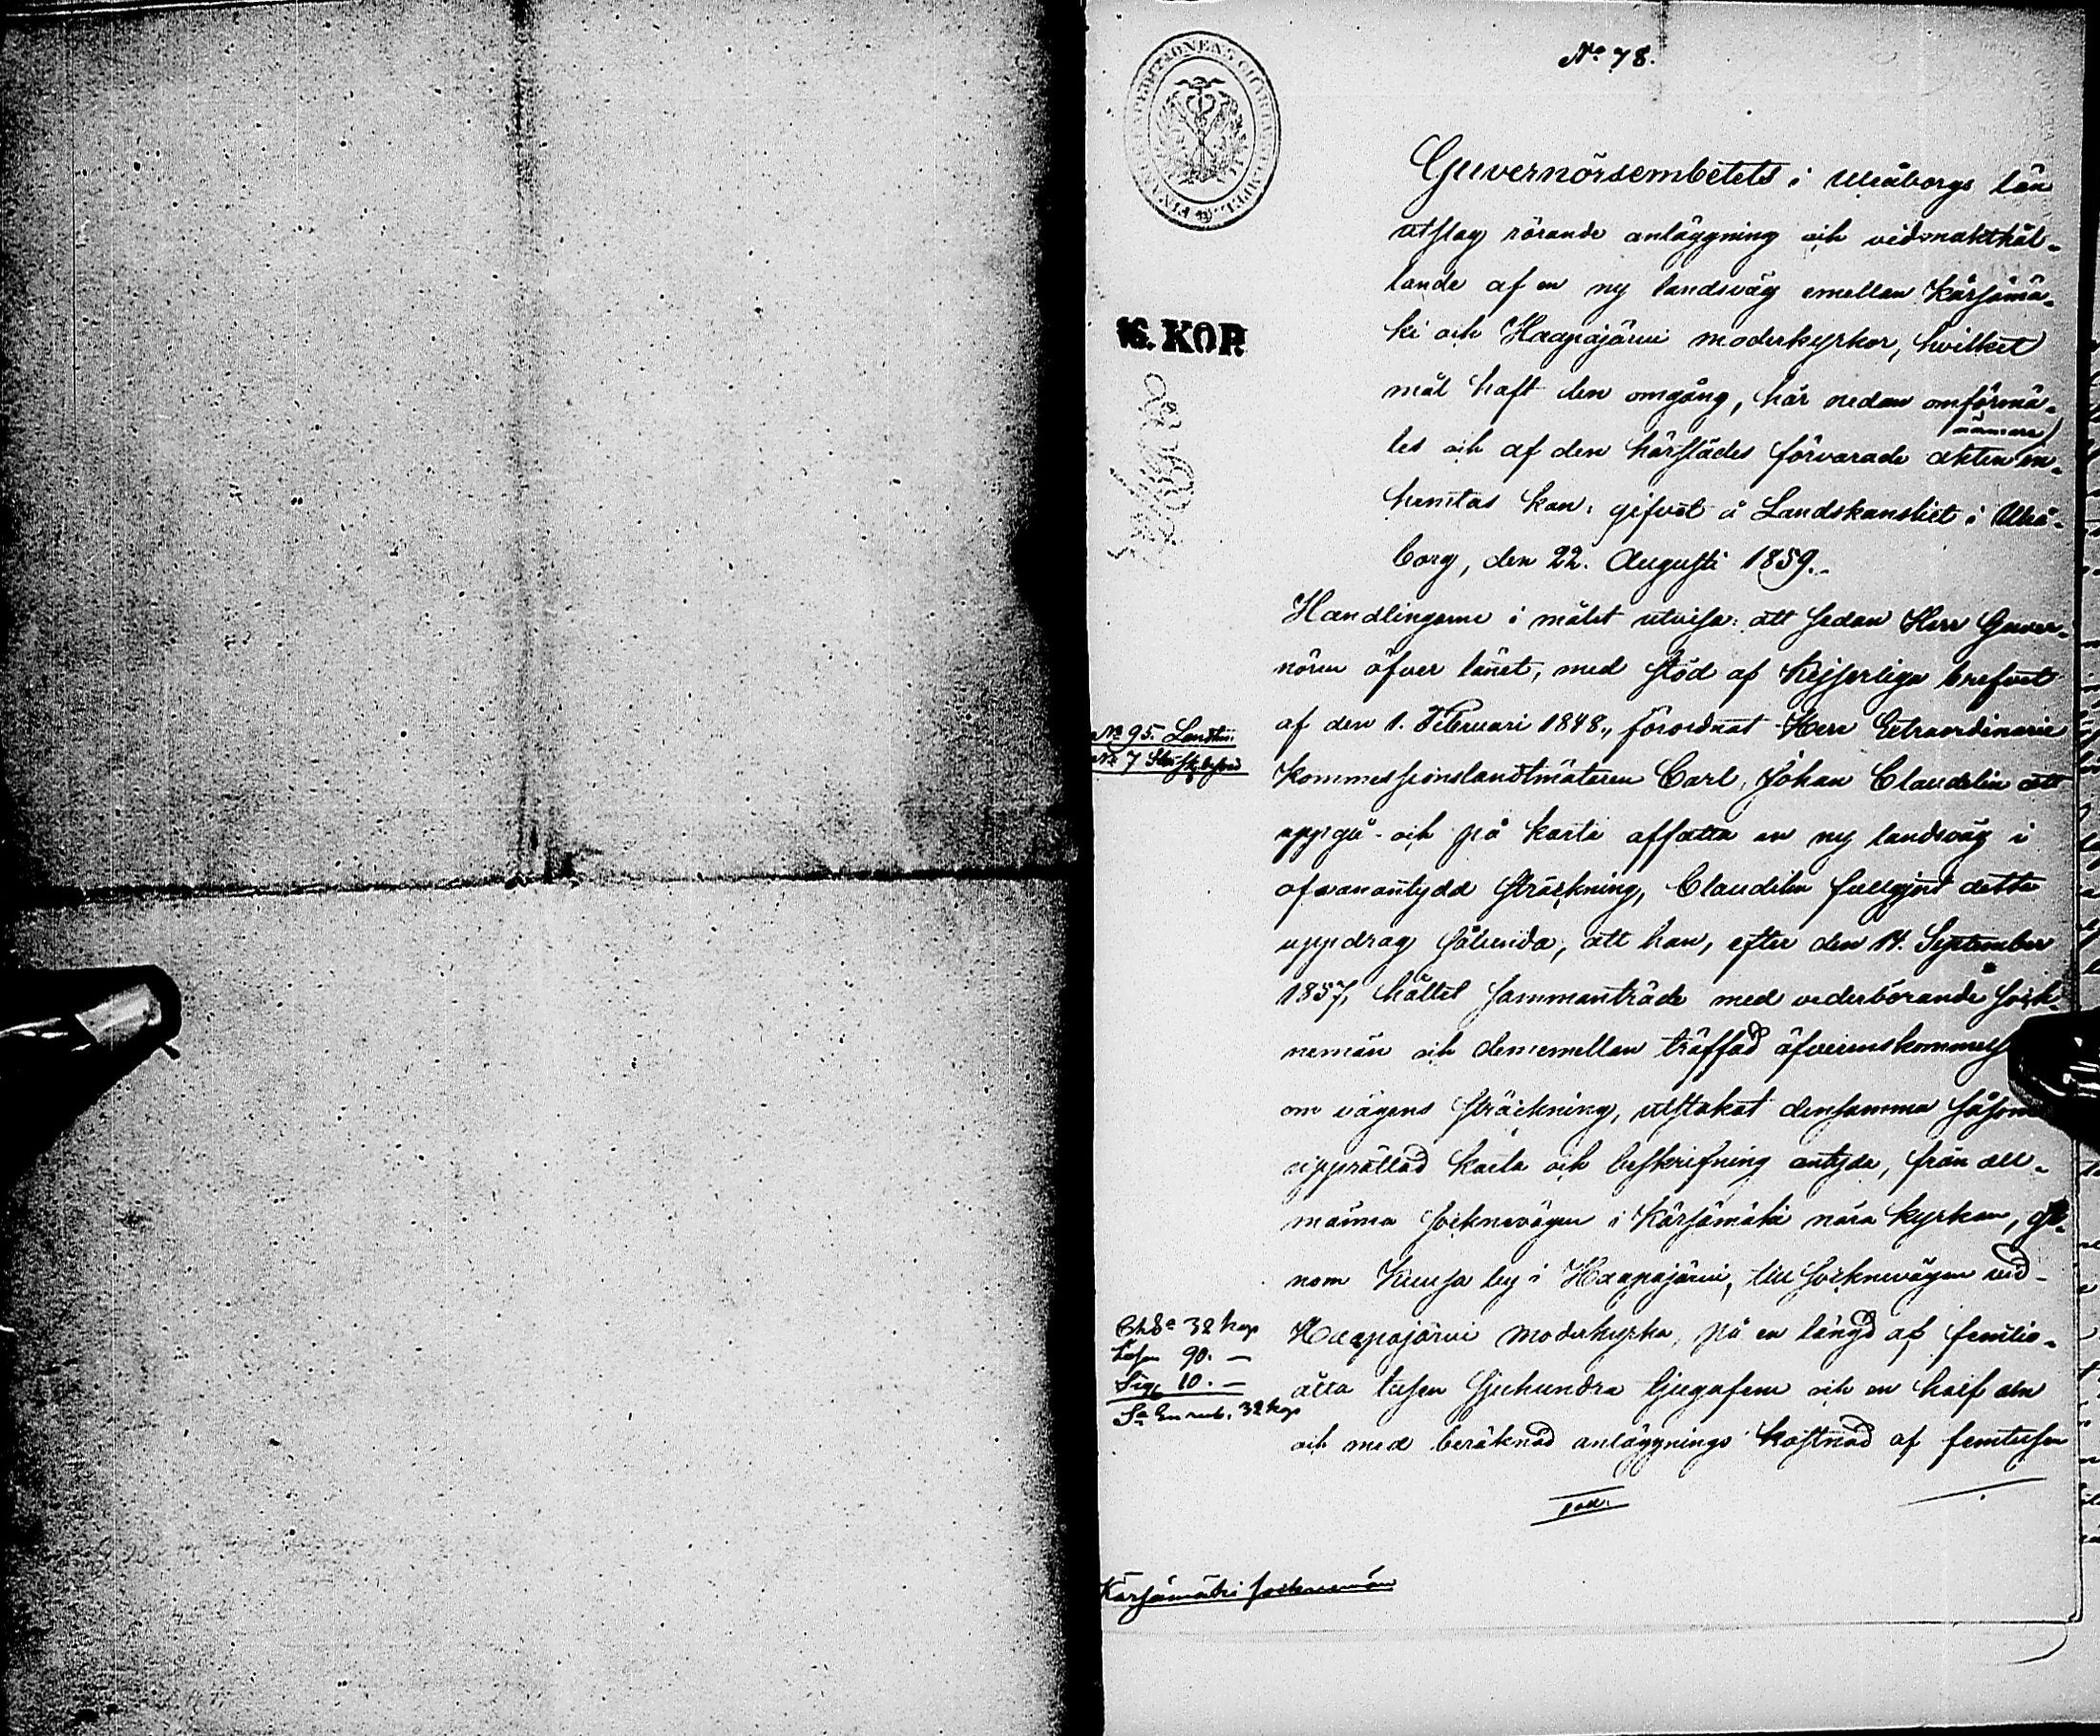 No 78.
Guvernörsembetets i Uleåborgs län
utslag rörande anläggning och vidmakthål-
lande af en ny landsväg emellan Kärsämä-
ki och Haapajärvi moderkyrkor, hvilket
mål haft den omgång, här nedan omförmä-
nämare
les och af den härstädes förvarade akten in-
hemtas kan; gifvet å Landskansliet i Uleå-
borg, den 22. Augusti 1859.
16. KOP.
Handlingarne i målet utvisa: att sedan Herr Guver-
nören öfver länet, med stöd af Kejserliga brefvet
af den 1. Februari 1848, förordnat Herr Extraordinarie
No 95. Landtm:
No 7
Kommissionslandtmätaren Carl Johan Claudelin att
uppgå och på karta affatta en ny landsväg i
ofvanantydd sträckning, Claudelin fullgjort detta
uppdrag sålunda, att han, efter den 14. September
1857, hållet sammanträde med vederbörande sock-
nemän och dememellan träffad öfverenskommels
om vägens sträckning, utstakat densamma såsom
upprättad karta och beskrifning antyda, från all-
männa socknevägen i Kärsämäki nära kyrkan, ge-
nom Kuusa by i Haapajärvi, till socknevägen vid
Haapajärvi moderkyrka, på en längd af femtio-
åtta tusen sjuhundra tjugufem och en half aln
och med beräknad anläggnings kostnad af femtusen
Ch Sa 32 kop
Lösn 90. —
Sig 10. —
Sa En rub. 32 kop
Kärsämäki socknemän